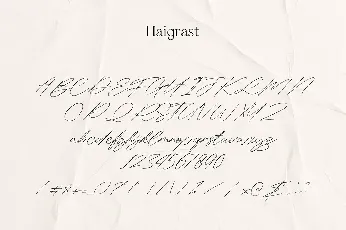 Haigrast
A B C D E F G H I J K L M N
O P Q R S T U V W X Y Z
abcdefghijklmnopqrstuvwxyz
1234567890